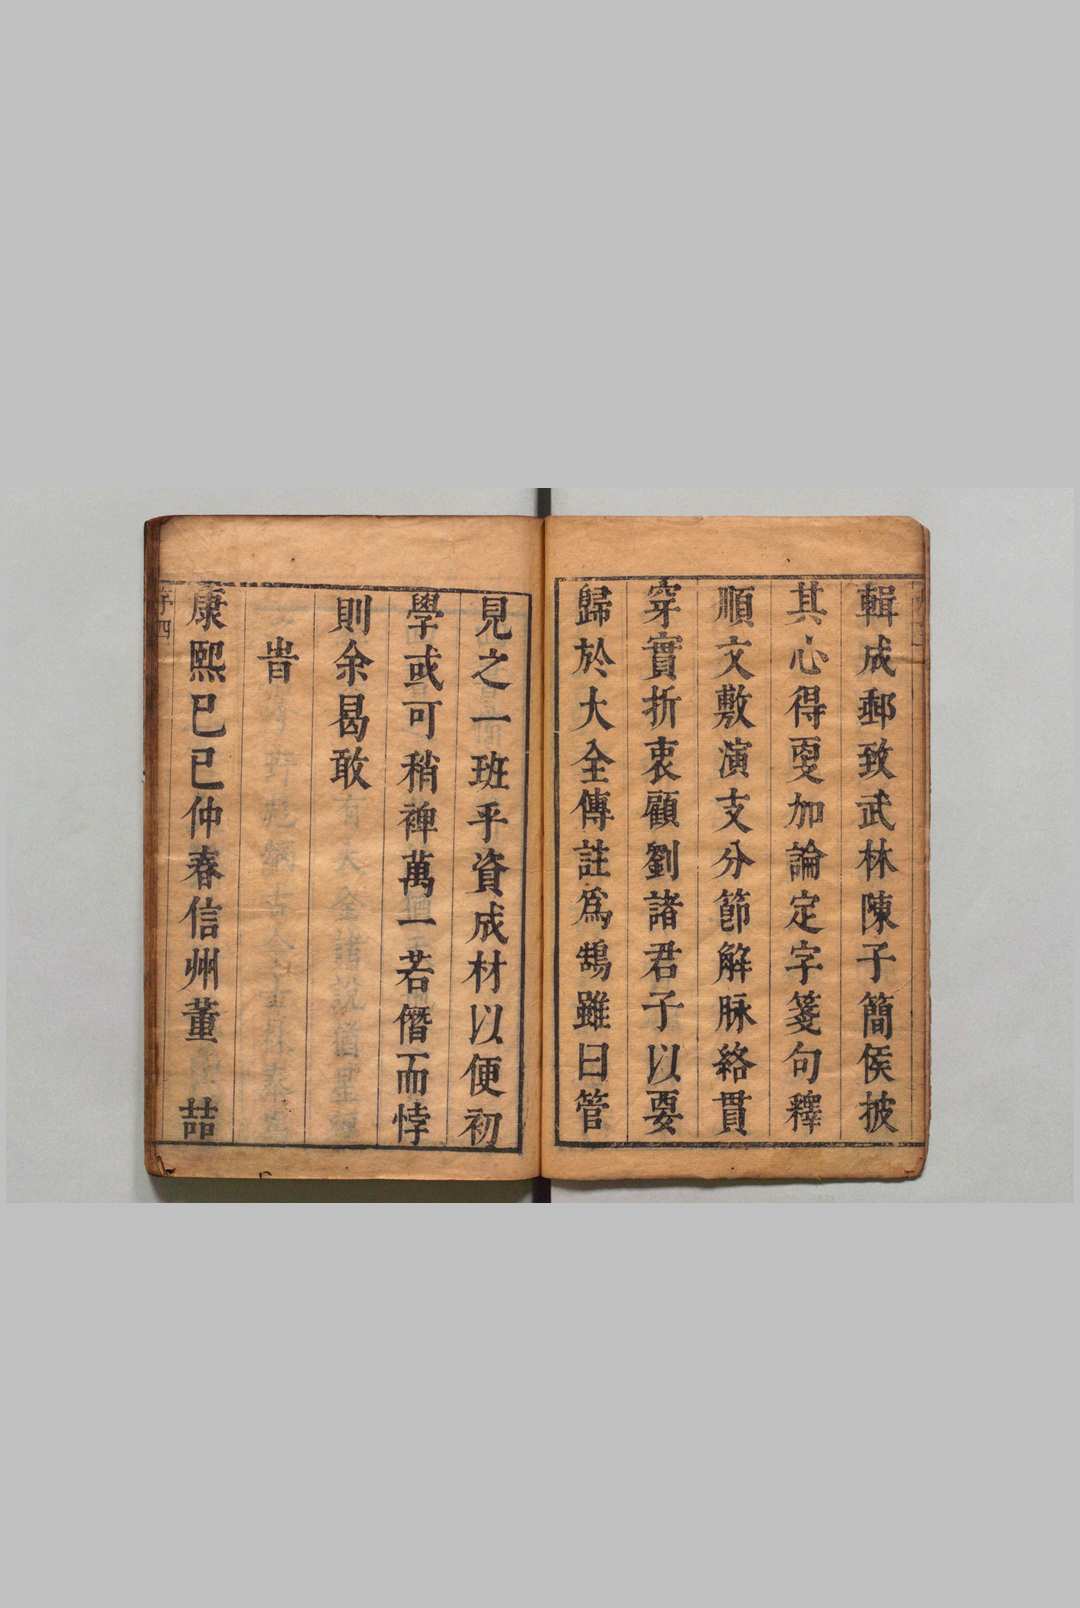 輯成郵致武林陳子簡侯披
其心得更加論定字箋句釋
順文敷演支分節解脉絡貫
穿實折衷顧劉諸君子以要
歸於大全傳註爲鵠雖曰管
見之一班乎資成材以便初
學或可稍裨萬一若僭而悖
則余曷敢
旹
康熙己巳仲春信州董　喆
序四